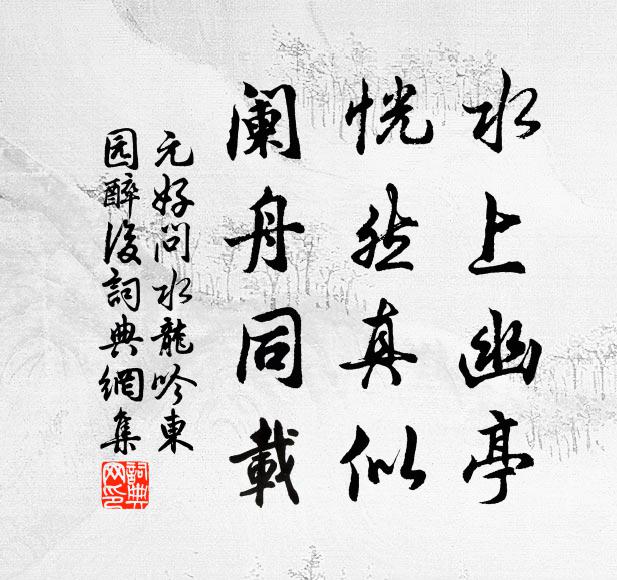 水上幽亭
恍然真似
阑舟同載
元好问水龍吟東
园醉後詞典網集
詞典
网印